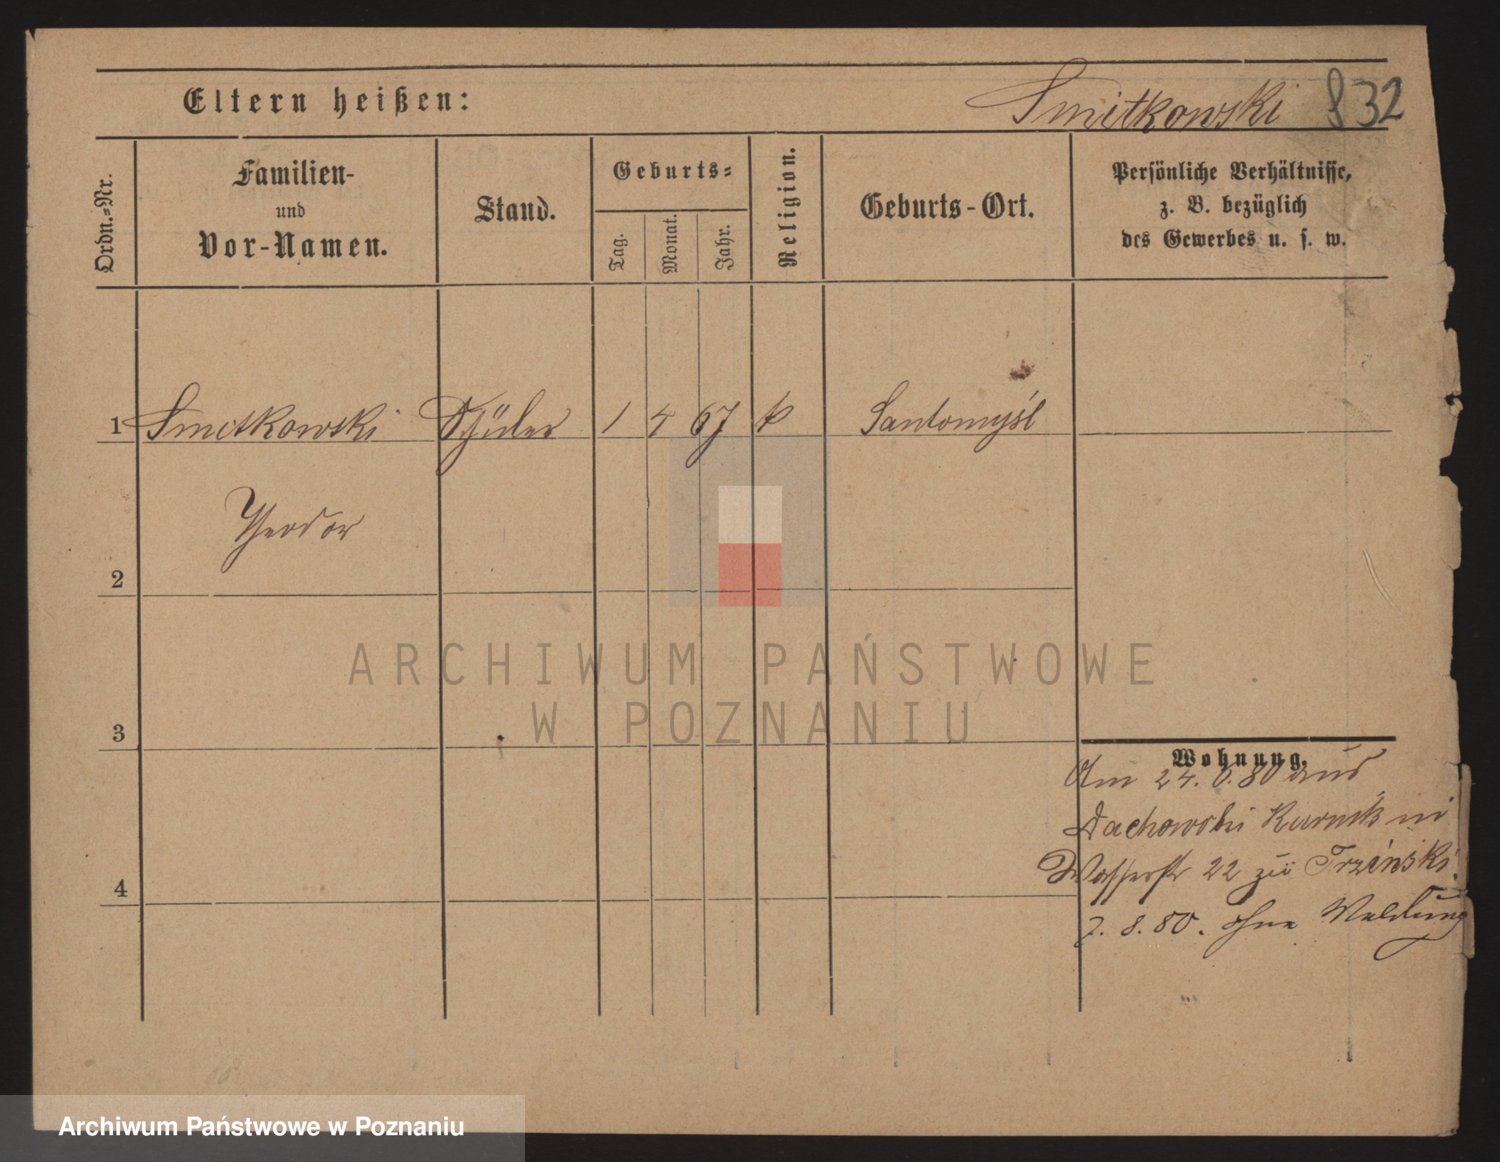 Eltern heißen:
Smitkowski 832
Ordn.=Nr.
Familien-
und
Vor-Namen.
Stand.
Geburts=
Tag.
Monat.
Jahr.
Religion.
Geburts-Ort.
Persönliche Verhältnisse,
z. B. bezüglich
des Gewerbes u. s. w.
1 Smitkowski Schüler 1 4 67 k Santomyśl
Theodor
2
3
4
Wohnung.
Am 24. 80 aus
Dachowski Kurnik in
Wasserstr 22 zu Trzinski.
7. 8. 80. ohne Meldung
ARCHIWUM PAŃSTWOWE
W POZNANIU
Archiwum Państwowe w Poznaniu